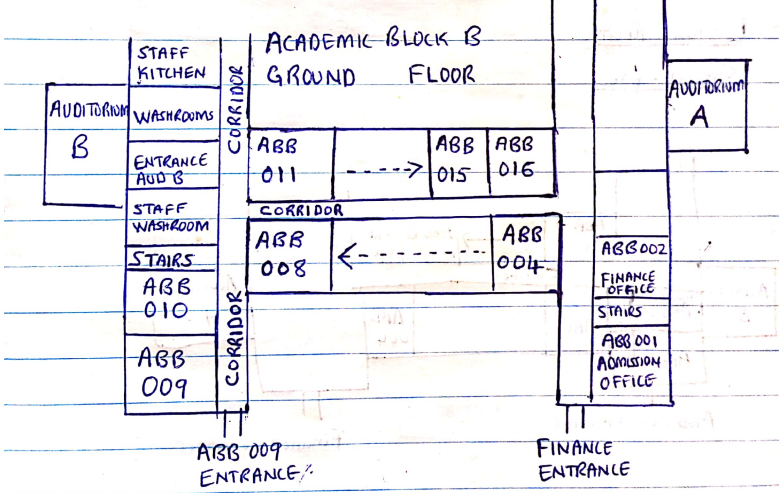 ACADEMIC BLOCK B
GROUND FLOOR
STAFF
KITCHEN
WASHROOMS
AUDITORIUM
B
ENTRANCE
AUD B
STAFF
WASHROOM
STAIRS
ABB
010
ABB
009
CORRIDOR
CORRIDOR
ABB
011
ABB
015
ABB
016
CORRIDOR
ABB
008
ABB
004
AUDITORIUM
A
ABB 002
FINANCE
OFFICE
STAIRS
ABB 001
ADMISSION
OFFICE
ABB 009
ENTRANCE
FINANCE
ENTRANCE